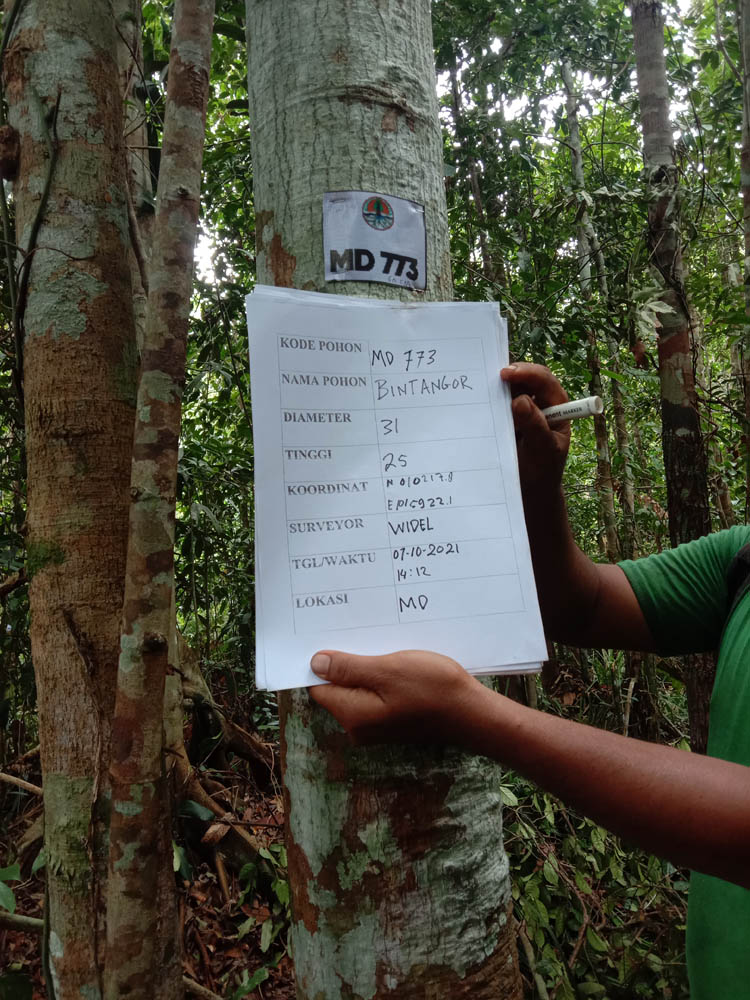 MD 773
KODE POHON MD 773
NAMA POHON BINTANGOR
DIAMETER 31
TINGGI 25
KOORDINAT N 010217.8
SURVEYOR WIDEL
TGL/WAKTU 07-10-2021
14:12
LOKASI MD
MARKER